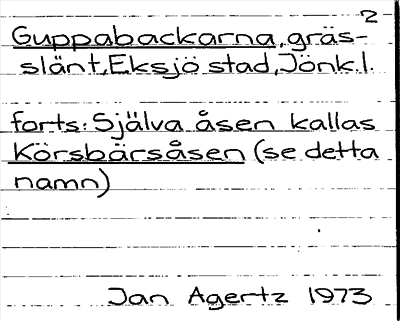 2
Guppabackarna, gräs-
slänt, Eksjö stad, Jönk.l.
forts: Själva åsen kallas
Körsbärsåsen (se detta
namn)
Jan Agertz 1973